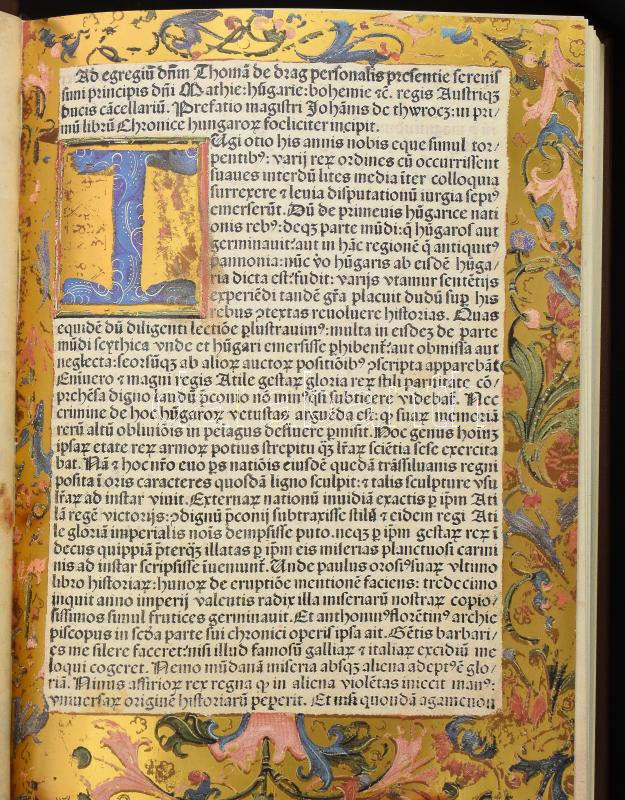 Ad egregiū dn̄m Thomā de drag personalis presentie sereniſ
simi principis dn̄i Mathie: hūgarie: bohemie ⁊c̄. regis Austriꝗꝫ
ducis cācellariū. Prefatio magistri Johānis de thwrocz: in pri⸗
mū librū Chronice hungaroꝝ foeliciter incipit.
T Ugi otio his annis nobis eque simul tor⸗
pentibꝰ: varij reꝝ ordines cū occurrissent
suaues interdū lites media īter colloquia
surrexere ⁊ leuia disputationū iurgia sepiꝰ
emerserūt. Dū de primeuis hūgarice nati
onis rebꝰ: deqꝫ parte mūdi: q̄ hūgaros aut
germinauit: aut in hāc regionē q̄ antiquitꝰ
pannonia: nūc ꝟo hūgaris ab eisdē hūga⸗
ria dicta est: fudit: varijs vtamur sentētijs
experiēdi tandē gr̄a placuit dudū suꝑ his
rebus ꝯtextas reuoluere historias. Quas
equidē dū diligenti lectiōe ꝑlustrauimꝰ: multa in eisdeꝫ de parte
mūdi scythica vnde et hūgari emersisse ꝑhibent̄: aut obmissa aut
neglecta: seorsūqꝫ ab alioꝝ auctoꝝ positiōibꝰ ꝯscripta apparebāt
Eniuero ⁊ magni regis Atile gestaꝝ gloria reꝝ stili paritate cō⸗
prehēsa digno laudū p̄conio nō minꝰ qꝫ subticere videbat̄. Nec
crimine de hoc hūgaroꝝ vetustas arguēda est: q̄ suaꝝ inuenciā
rerū altū obliuiōis in pelagus defluere ꝑmisit. Hoc genus hoīuꝫ
ipsaꝝ etate reꝝ armoꝝ potius strepitu qꝫ lr̄aꝝ sciētia sese exercita
bat. Nā ⁊ hoc nr̄o euo ꝑs natiōis eiusdē quedā trāssiluanis regni
posita ī oris caracteres quosdā ligno sculpit: ⁊ talis sculpture vsu
lr̄aꝝ ad instar viuit. Externaꝝ nationū inuidiā exactis ꝑ ip̄m Ati
lā regē victorijs: ꝯdignū p̄conij subtraxisse stilū ⁊ eidem regi Ati
le gloriā imperialis nois dempsisse puto. neqꝫ ꝑ ip̄m gestaꝝ reꝝ ī
decus quippiā p̄terqꝫ illatas ꝑ ip̄m eis miserias planctuosi carmi
nis ad instar scripsisse īuemunt̄. Unde paulus orosiꝰ suaꝝ vltimo
libro historiaꝝ: hunoꝝ de eruptiōe mentionē faciens: tredecimo
inquit anno imperij valentis radix illa miseriarū nostraꝝ copio⸗
sissimos simul frutices germinauit. Et anthoninꝰ florētinꝰ archie
piscopus in sc̄da parte sui chronici operis ipsa ait. Gētis barbari⸗
es me silere faceret: nisi illud famosū galliaꝝ ⁊ italiaꝝ excidiū me
loqui cogeret. Nemo mūdanā miseria absqꝫ aliena adeptꝰ ē glo⸗
riā. Ninus assirioꝝ rex regna q̄ in aliena violētas iniecit manꝰ:
vniuersaꝝ originē historiarū peperit. Et nisi quondā agamenon